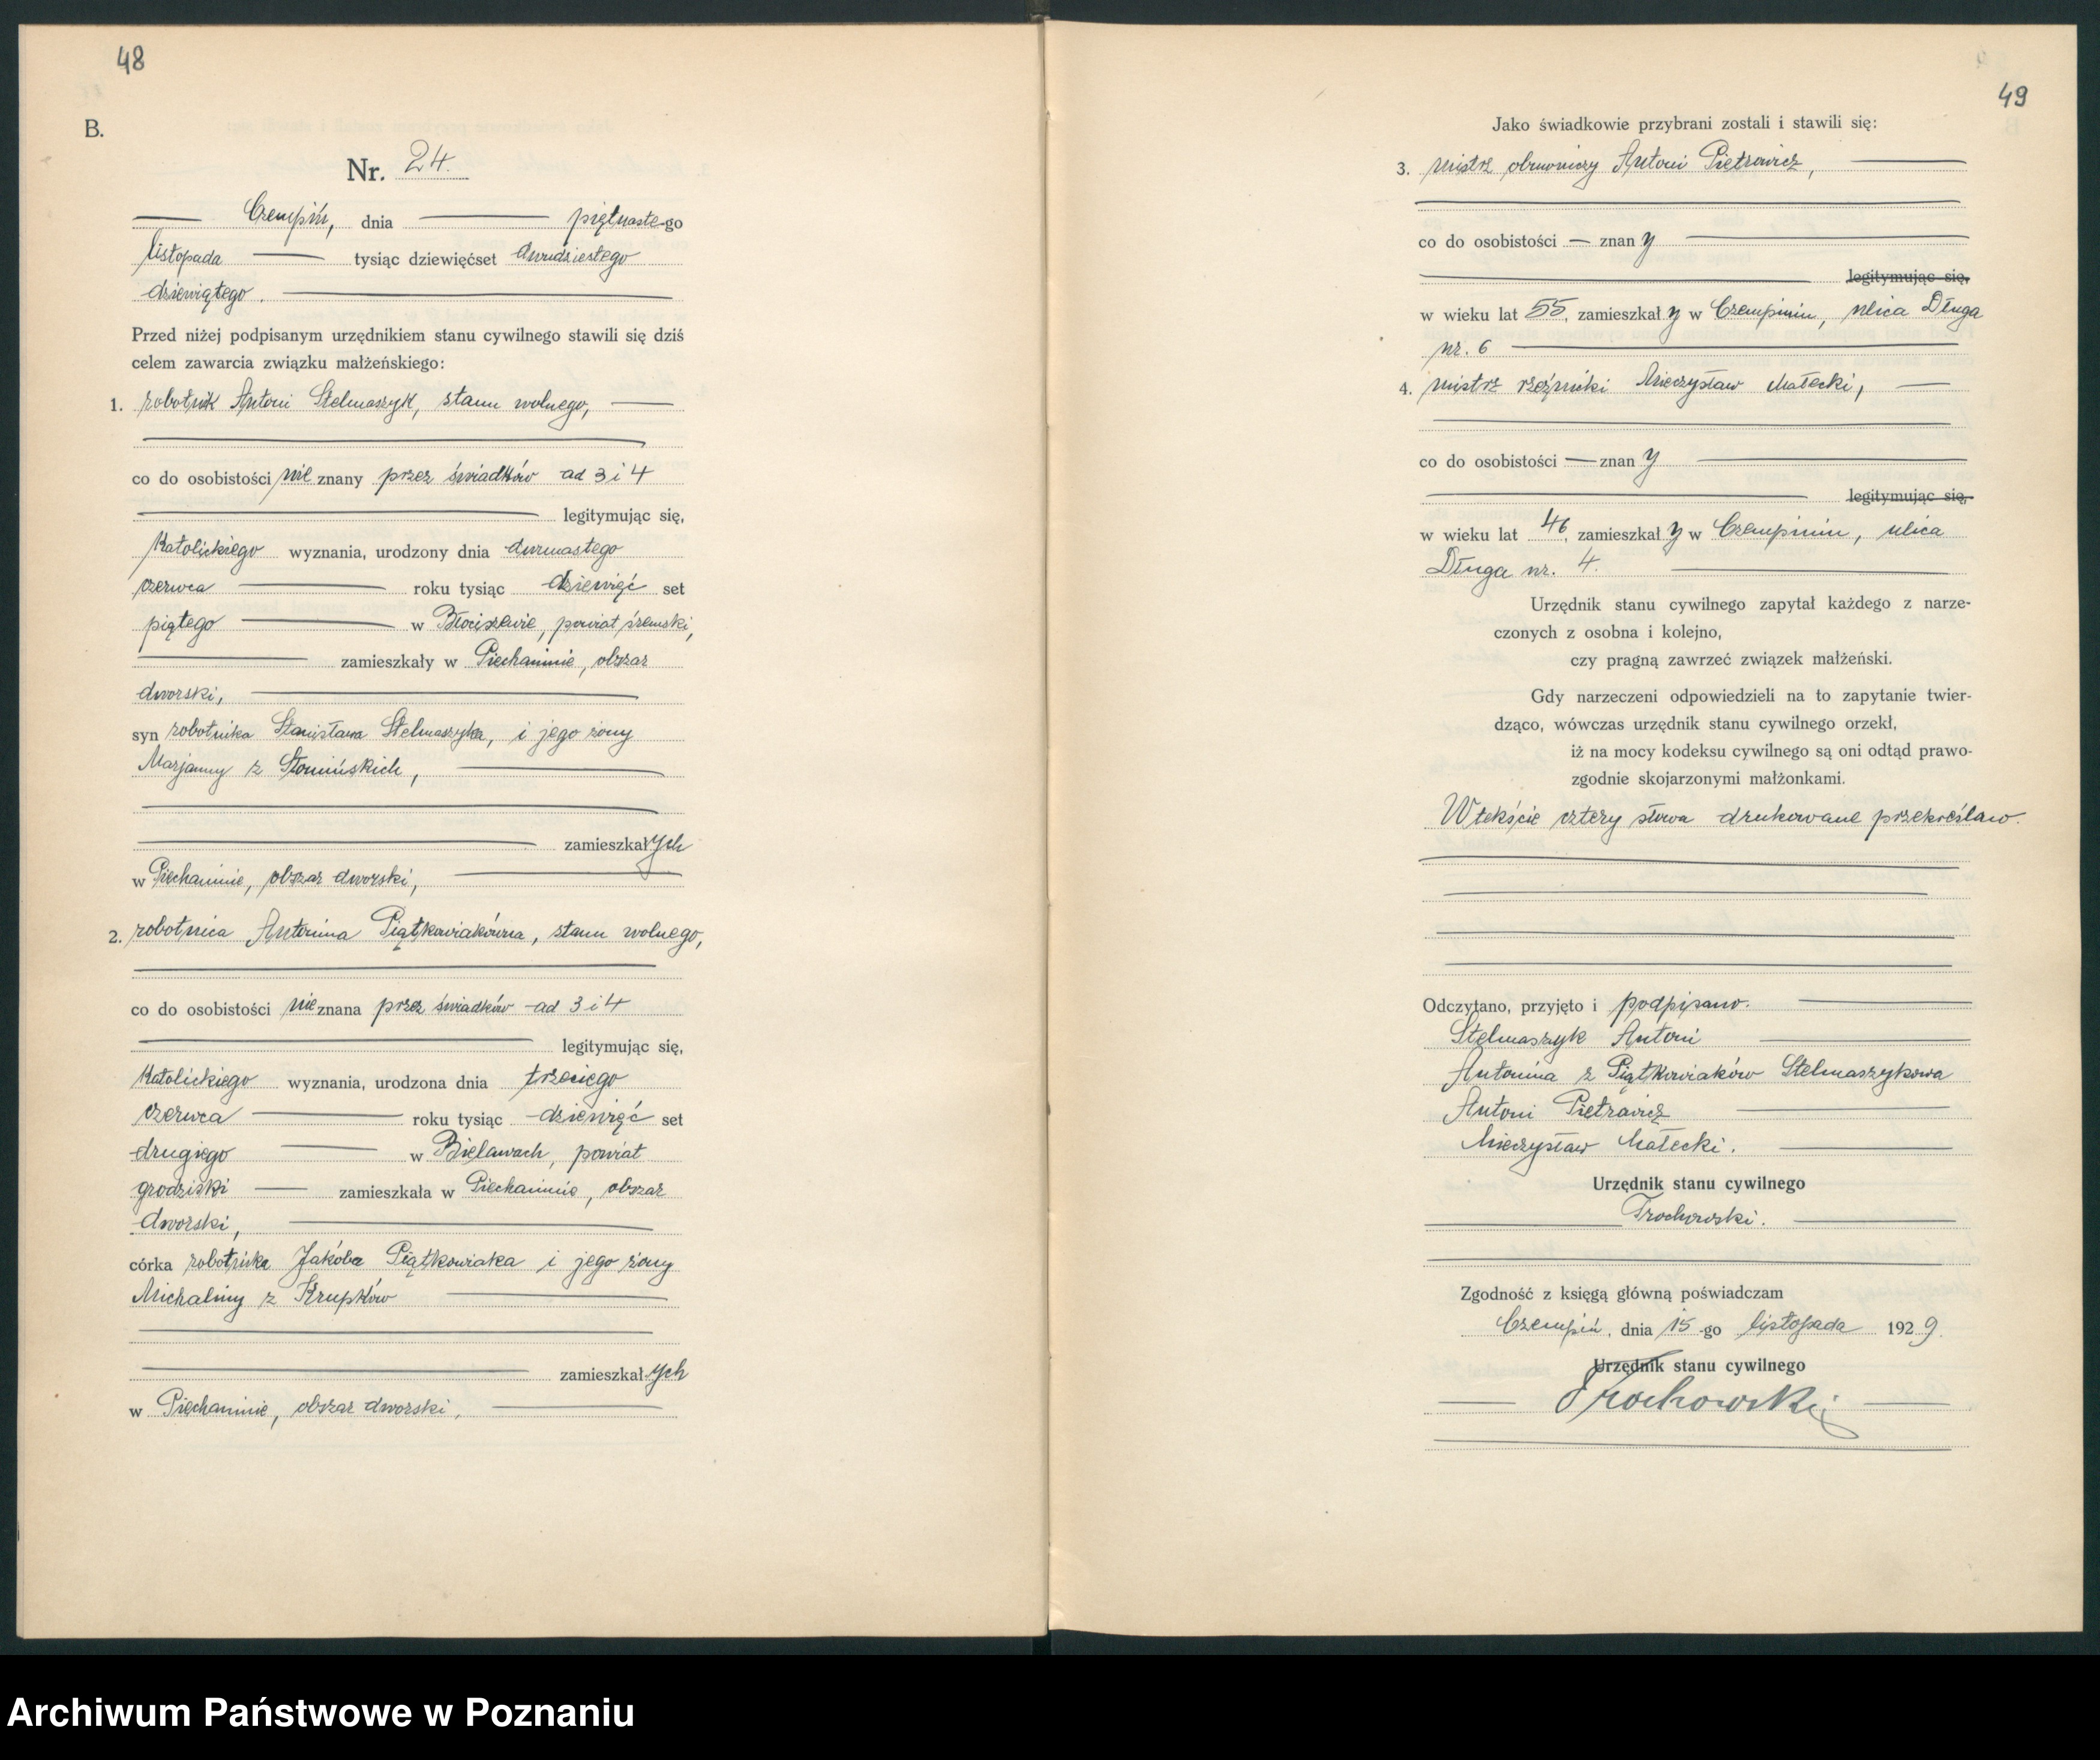 48
B.
Nr. 24.
Czempiń, dnia piętnastego
listopada tysiąc dziewięćset dwudziestego
dziewiątego.
Przed niżej podpisanym urzędnikiem stanu cywilnego stawili się dziś
celem zawarcia związku małżeńskiego:
1. robotnik Antoni Stelmaszyk, stanu wolnego,
co do osobistości nie znany przez świadków ad 3 i 4
legitymując się,
katolickiego wyznania, urodzony dnia dwunastego
czerwca roku tysiąc dziewięć set
piątego w Błociszewie, powiat śremski,
zamieszkały w Piechaninie, obszar
dworski,
syn robotnika Stanisława Stelmaszyka, i jego żony
Marjanny z Słomińskich,
zamieszkałych
w Piechaninie, obszar dworski,
2. robotnica Antonina Piątkowiakówna, stanu wolnego,
co do osobistości nie znana przez świadków ad 3 i 4
legitymując się,
katolickiego wyznania, urodzona dnia trzeciego
czerwca roku tysiąc dziewięć set
drugiego w Bielawach, powiat
grodziski zamieszkała w Piechaninie, obszar
dworski,
córka robotnika Jakóba Piątkowiaka i jego żony
Michaliny z Krupków
zamieszkałych
w Piechaninie, obszar dworski,
49
Jako świadkowie przybrani zostali i stawili się:
3. mistrz obuwniczy Antoni Pietrowicz,
co do osobistości — znany
legitymując się,
w wieku lat 55, zamieszkały w Czempiniu, ulica Długa
nr. 6
4. mistrz rzeźnicki Mieczysław Małecki,
co do osobistości — znany
legitymując się,
w wieku lat 46, zamieszkały w Czempiniu, ulica
Długa nr. 4.
Urzędnik stanu cywilnego zapytał każdego z narze-
czonych z osobna i kolejno,
czy pragną zawrzeć związek małżeński.
Gdy narzeczeni odpowiedzieli na to zapytanie twier-
dząco, wówczas urzędnik stanu cywilnego orzekł,
iż na mocy kodeksu cywilnego są oni odtąd prawo-
zgodnie skojarzonymi małżonkami.
W tekście cztery słowa drukowane przekreślano.
Odczytano, przyjęto i podpisano.
Stelmaszyk Antoni
Antonina z Piątkowiaków Stelmaszykowa
Antoni Pietrowicz
Mieczysław Małecki.
Urzędnik stanu cywilnego
Trochowski.
Zgodność z księgą główną poświadczam
Czempiń, dnia 15-go listopada 1929
Urzędnik stanu cywilnego
Trochowski
Archiwum Państwowe w Poznaniu